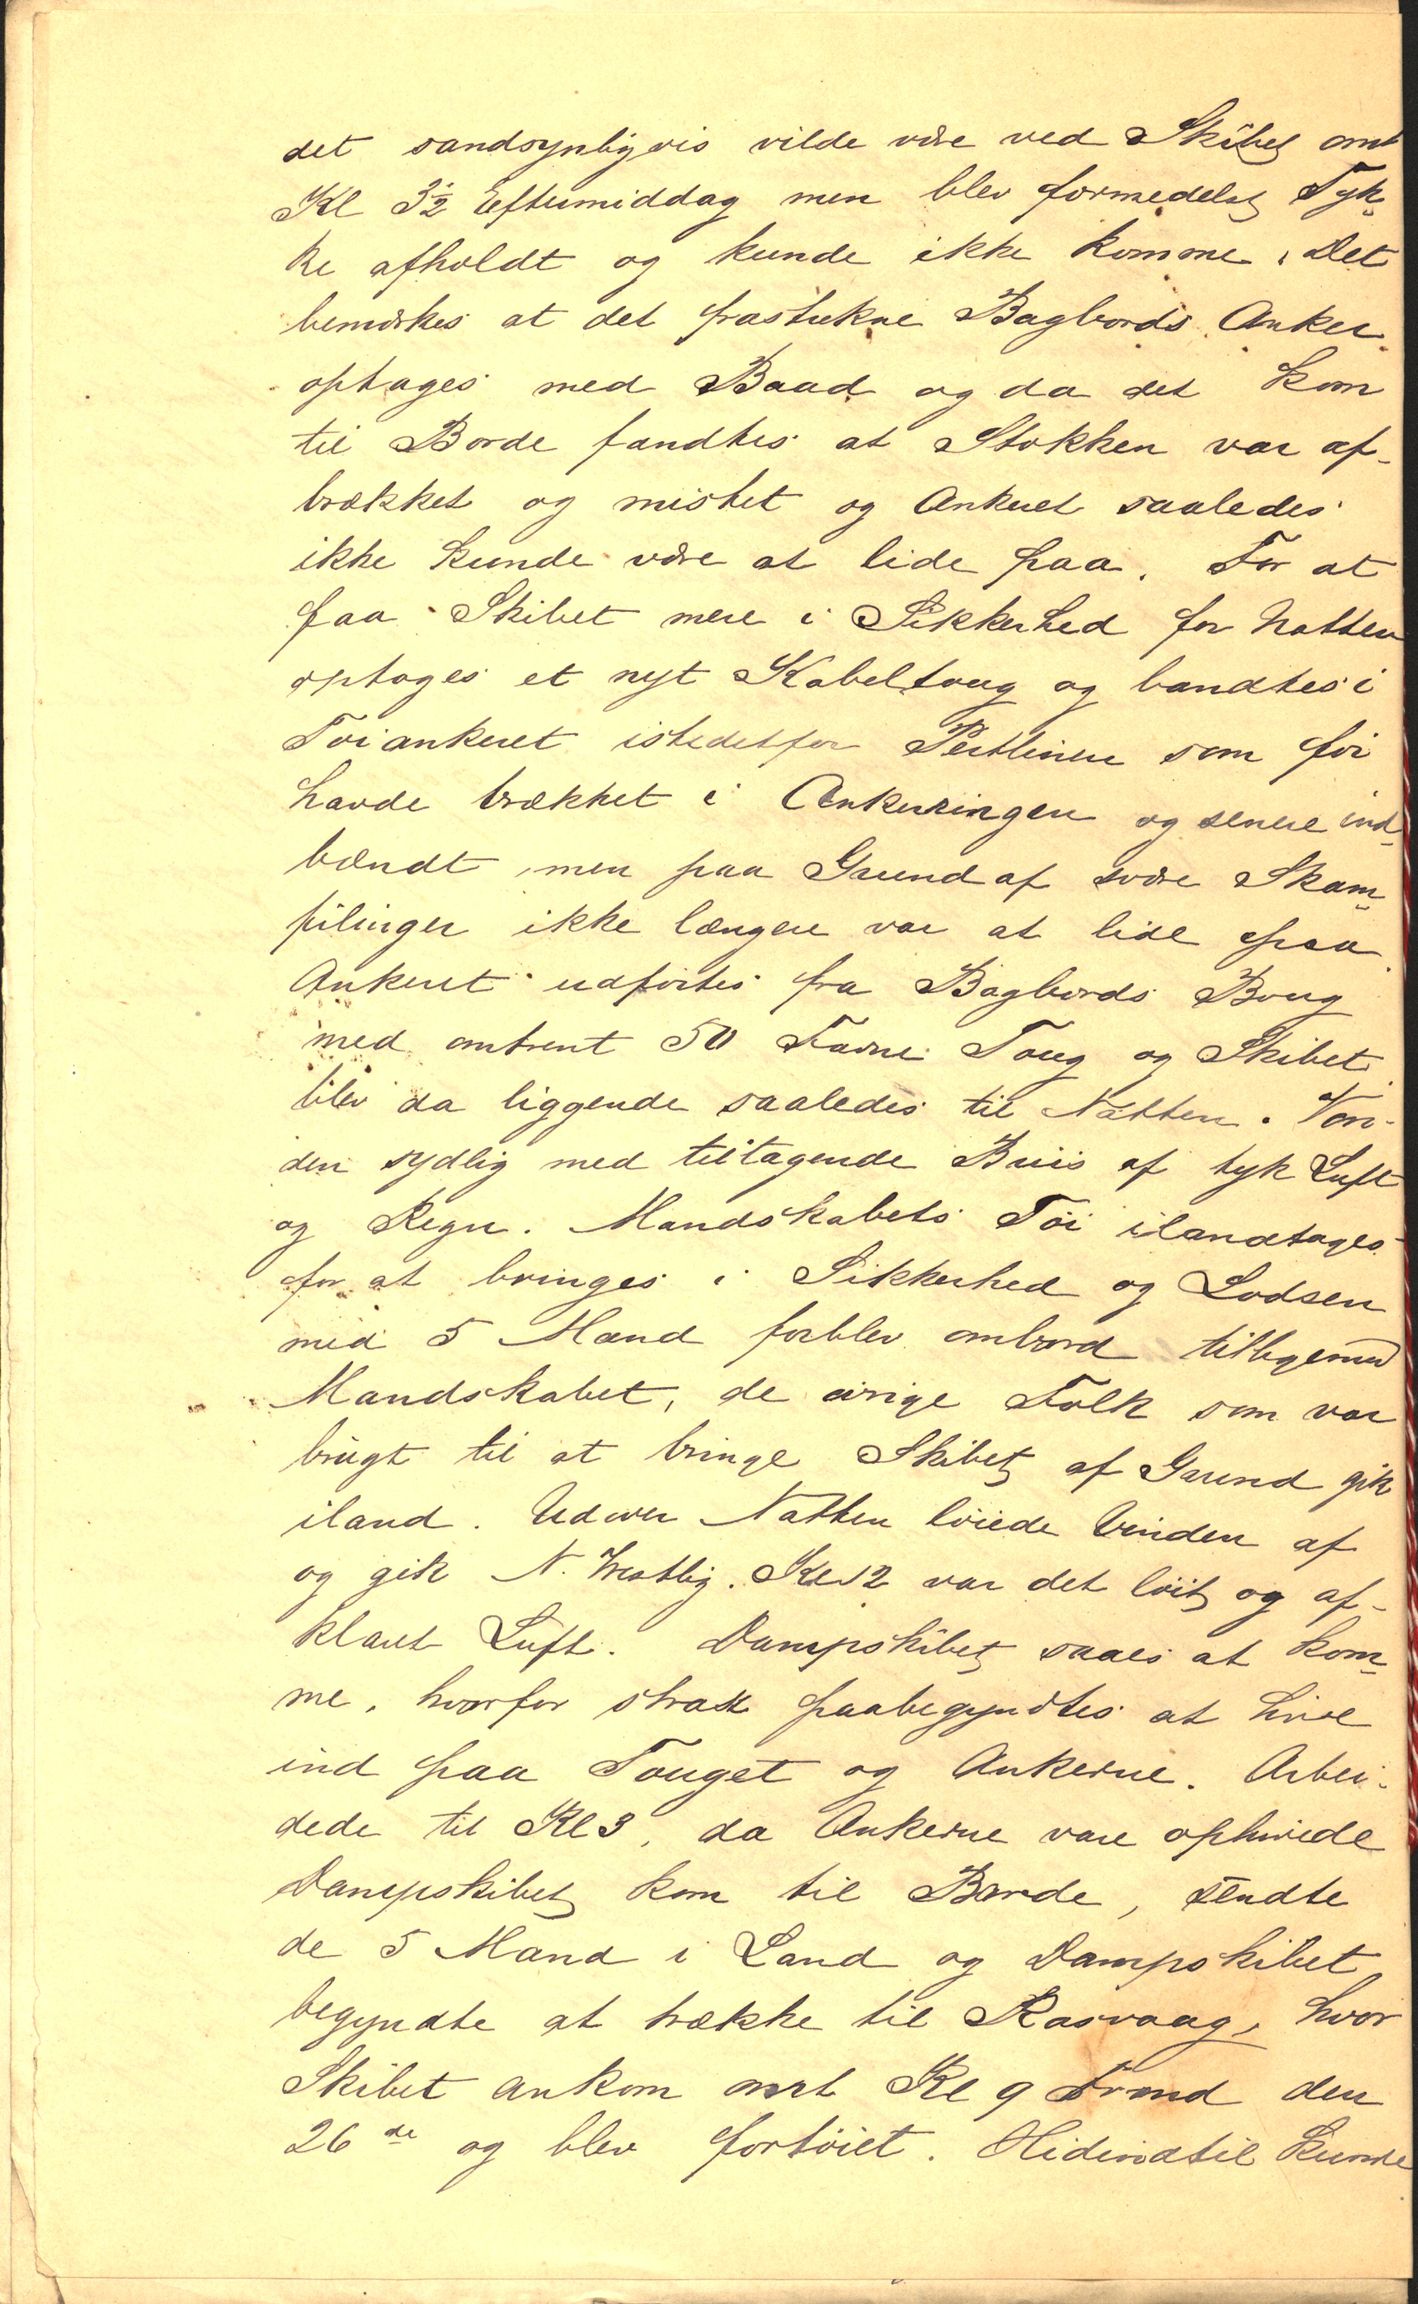 det sandsynligvis vilde være ved Skibet omt
Kl 3½ Eftermiddag men blev formedelst Tyk-
ke afholdt og kunde ikke komme. Det
bemærkes at det frastukne Bagbords Anker
optages med Baad og da det kom
til Borde fandtes at Stokken var af-
brækket og mistet og Ankeret saaledes
ikke kunde være at lide paa. For at
faa Skibet mere i Sikkerhed for Natten
optoges et nyt Kabeltoug og bandtes i
Töiankeret istedetfor Pertlinen som för
havde brækket i Ankerringen og senere ind-
bændt, men paa Grund af svære Skam-
filinger ikke længere var at lide paa.
Ankeret udförtes fra Bagbords Boug
med omtrent 50 Favne Toug og Skibet
blev da liggende saaledes til Natten. Vin-
den sydlig med tiltagende Briis af tyk Luft
og Regn. Mandskabets Töi ilandtages
for at bringes i Sikkerhed og Lodsen
med 5 Mand forblev ombord tilligemed
Mandskabet, de övrige Folk som var
brugt til at bringe Skibet af Grund gik
iland. Udover Natten löiede Vinden af
og gik N. Vestlig. Kl 12 var det löit og af-
klaret Luft. Dampskibet saaes at kom-
me, hvorfor strax paabegyndtes at hive
ind paa Touget og Ankerne. Arbei-
dede til Kl 3, da Ankerne vare ophivede
Dampskibet kom til Borde, sendte
de 5 Mand i Land og Dampskibet
begyndte at trække til Rasvaag, hvor
Skibet ankom omt Kl 9 Formd den
26de og blev fortöiet. Hidindtil kunde